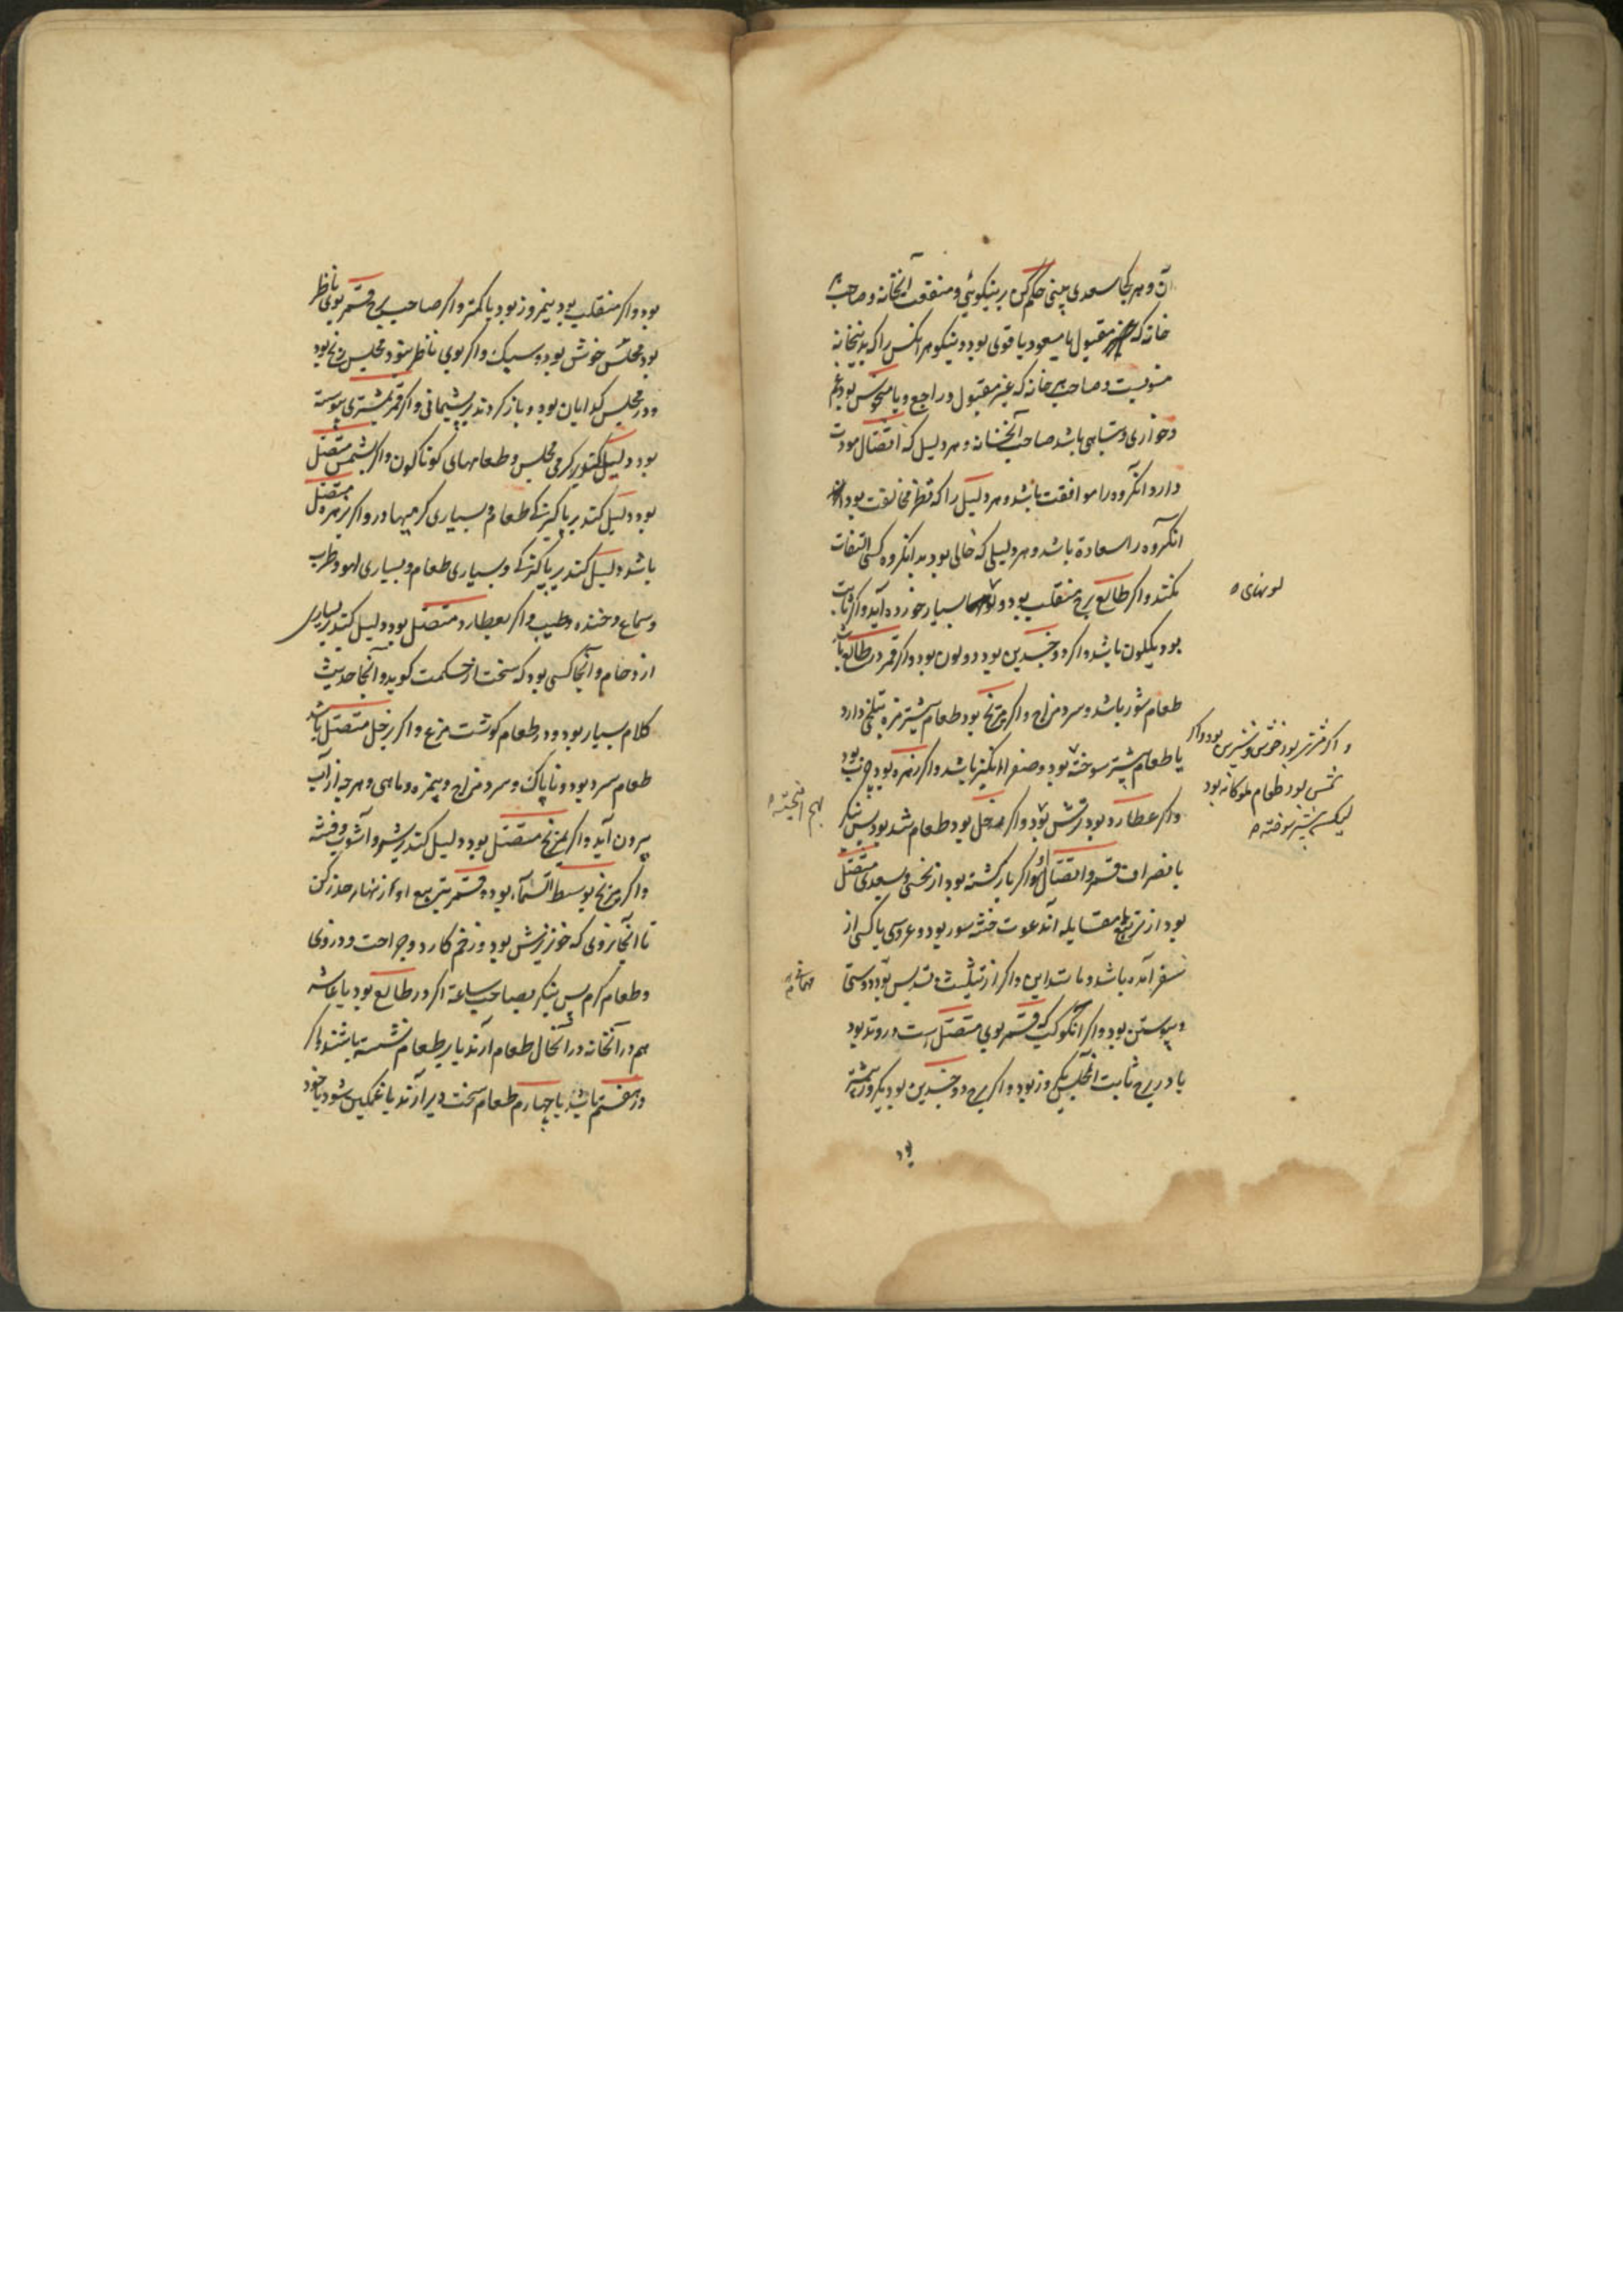 آن و هر کجا سعدی بینی حکم کن بر نیکوئی و منفعت آنخانه و صاحب هر
خانه که مقبول یا مسعود یا قوی بود نیکو مر آنکس را که بدینخانه
منسوبست و صاحب هر خانه که غیر مقبول و راجع و یا منحوس بود غم
و خواری و تباهی باشد صاحب آنخانه و هر دلیل که اتصال مودت
دارد آنگروه را موافقت باشد و هر دلیل را که نظر مخالفت بود
آنگروه را سعادة باشد و هر دلیلی که خالی بود بدانگروه کسی التفات
نکند و اگر طالع برج منقلب بود بسیار خورده آید و اگر ثابت
لونهای
بود یکلون باشد و اگر دو جسدین بود دو لون بود و اگر قمر در طالع باشد
طعام شور باشد و سرد مزاج و اگر مریخ بود طعام بیشتر مزه تلخی دارد
یا طعام بیشتر سوخته بود و صفرا انگیز باشد و اگر زهره بود چرب بود
و اگر مشتری بود خوش و شیرین بود و اگر
شمس بود طعام ملوکانه بود
لیکن بیشتر سوخته
و اگر عطارد بود ترش بود و اگر زحل بود طعام شد بود پس بنگر
بهم آمیخته
بانصراف قمر و اتصال او اگر بازگشته بود از نحسی و بسعدی متصل
بود از تربیع یا مقابله آن دعوت ختنه سور بود و عروسی یا کسی از
سفر آمده باشد و مانند این و اگر از تثلیث و تسدیس بود دوستی
و پیوستن بود و اگر آنکوکب که قمر بوی متصل است در وتد بود
یا در برج ثابت آنمجلس یکروز بود و اگر برج دو جسدین بود یکروز بیشتر
بود
بود و اگر منقلب بود نیمروز بود یا کمتر و اگر صاحب برج قمر بوی ناظر
بود مجلس خوش بود و سبک و اگر بوی ناظر نبود مجلس رنج بود
و در مجلس گدایان بود و باز گردند بپشیمانی و اگر قمر بمشتری پیوسته
بود دلیل کند بر گرمی مجلس و طعامهای گوناگون و اگر بشمس متصل
بود دلیل کند بر پاکیزگی طعام و بسیاری گرمیها در و اگر بزهره متصل
باشد دلیل کند بر پاکیزگی و بسیاری طعام و بسیاری لهو و طرب
و سماع و خنده و طیب و اگر بعطارد متصل بود دلیل کند بر بسیاری
ازدحام و آنجا کسی بود که سخت از حکمت گوید و آنجا حدیث
کلام بسیار بود و در طعام گوشت مرغ و اگر بزحل متصل باشد
طعام سرد بود و ناپاک و سرد مزاج و بیمزه و ماهی و هر چه از آب
بیرون آید و اگر بمریخ متصل بود دلیل کند بر شر و آشوب و فتنه
و اگر مریخ بوسط السماء بود و قمر بتربیع او از زنهار حذر کن
تا آنجا نروی که خونریزش بود و زخم کارد و جراحت و دزدی
و طعام گرم پس بنگر بصاحب ساعة اگر در طالع بود یا عاشر
هم در آنخانه در آنحال طعام آرند یا بر طعام نشسته باشند و اگر
در هفتم باشد یا چهارم طعام سخت دیر آرند یا غمگین شود یا خود